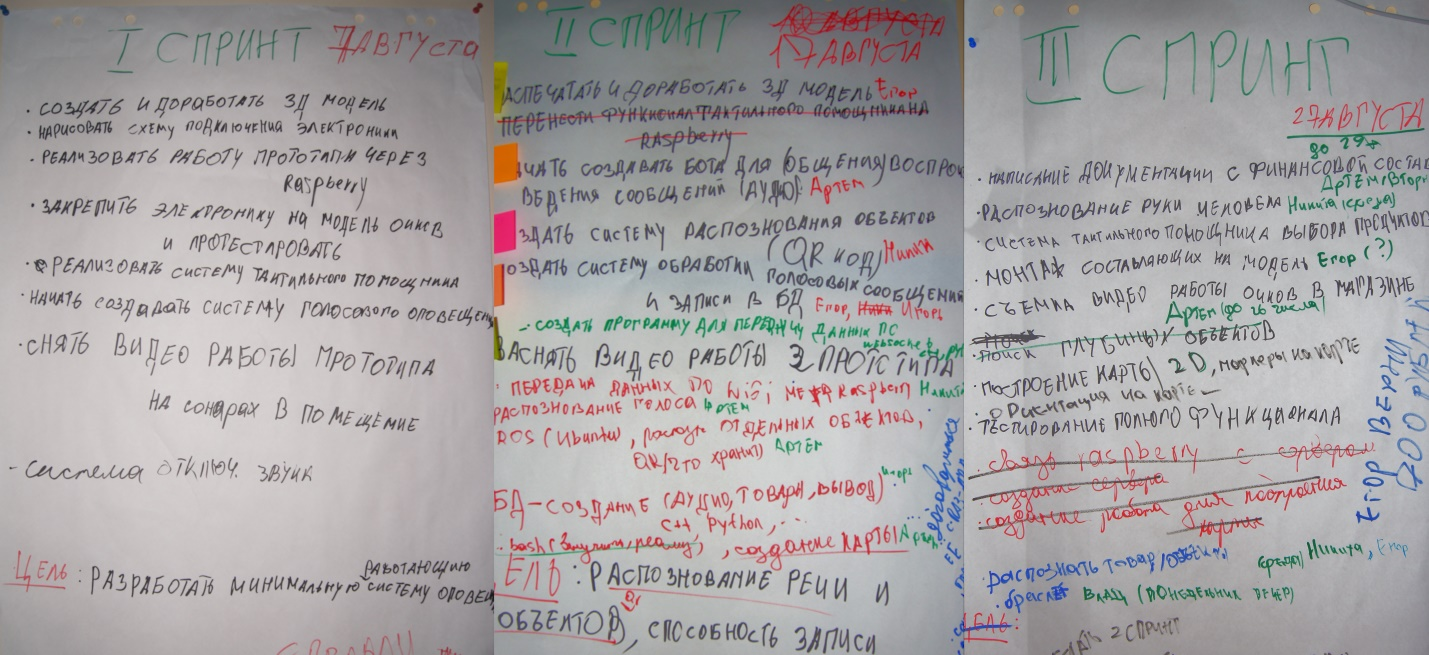 I СПРИНТ 7 АВГУСТА
· СОЗДАТЬ И ДОРАБОТАТЬ 3Д МОДЕЛЬ
· НАРИСОВАТЬ СХЕМУ ПОДКЛЮЧЕНИЯ ЭЛЕКТРОНИКИ
· РЕАЛИЗОВАТЬ РАБОТУ ПРОТОТИПА ЧЕРЕЗ
Raspberry
· ЗАКРЕПИТЬ ЭЛЕКТРОНИКУ НА МОДЕЛЬ ОЧКОВ
И ПРОТЕСТИРОВАТЬ
· РЕАЛИЗОВАТЬ СИСТЕМУ ТАКТИЛЬНОГО ПОМОЩНИКА
· НАЧАТЬ СОЗДАВАТЬ СИСТЕМУ ГОЛОСОВОГО ОПОВЕЩЕН
· СНЯТЬ ВИДЕО РАБОТЫ ПРОТОТИПА
НА сонарах В ПОМЕЩЕНИЕ
- система ОТКЛЮЧ. ЗВУК
ЦЕЛЬ: РАЗРАБОТАТЬ МИНИМАЛЬНУЮ РАБОТАЮЩУЮ СИСТЕМУ ОПОВЕЩ
СДЕЛАЛИ
II СПРИНТ
17 АВГУСТА
АСПЕЧАТАТЬ И ДОРАБОТАТЬ 3Д МОДЕЛЬ Егор
ПЕРЕНЕСТИ ФУНКИОНАЛ ТАКТИЛЬНОГО ПОМОЩНИКА НА
Raspberry
АЧАТЬ СОЗДАВАТЬ БОТА ДЛЯ (ОБЩЕНИЯ) ВОСПРО
ВЕДЕНИЯ СООБЩЕНИЙ (АУДИО) Артем
ЗДАТЬ СИСТЕМУ РАСПОЗНОВАНИЯ ОБЪЕКТОВ
(QR код)
ОЗДАТЬ СИСТЕМУ ОБРАБОТКИ ГОЛОСОВЫХ СООБЩЕНИЙ
И ЗАПИСИ В БД Егор, Игорь
· СОЗДАТЬ ПРОГРАММУ ДЛЯ ПЕРЕДАЧУ ДАННЫХ ПС
ЗАСНЯТЬ ВИДЕО РАБОТЫ 2 ПРОТОТИПА
· ПЕРЕДАЧА ДАННЫХ ПО WiFi; Raspberry Никита
РАСПОЗНОВАНИЕ ГОЛОСА Артем
ROS (Ubuntu), ОТДЕЛЬНЫХ ОБЪЕКТОВ,
QR/что хранит) АРТЕМ
БД - СОЗДАНИЕ (АУДИО, ТОВАРЫ, ВЫВОД) Игорь
C++, python, ...
· bash (Запускать, режимы), создание КАРТЫ
ЕЛЬ: РАСПОЗНОВАНИЕ РЕЧИ И
ОБЪЕКТОВ, СПОСОБНОСТЬ ЗАПИСИ
III СПРИНТ
27 АВГУСТА
до 29
· НАПИСАНИЕ ДОКУМЕНТАЦИИ С ФИНАНСОВОЙ СОСТА
АРТЕМ (Вторн
· РАСПОЗНОВАНИЕ РУКИ ЧЕЛОВЕКА Никита (среда)
· СИСТЕМА ТАКТИЛЬНОГО ПОМОЩНИКА ВЫБОРА ПРОДУКТОВ
· МОНТАЖ СОСТАВЛЯЮЩИХ НА МОДЕЛЬ Егор (?)
· СЪЕМКА ВИДЕО РАБОТЫ ОЧКОВ В МАГАЗИНЕ
Артем (до 26 числа)
· ПОИСК ГЛУБИНЫХ ОБЪЕКТОВ
· ПОСТРОЕНИЕ КАРТЫ 2D, маркеры на карте
· Ориентация на карте
· ТЕСТИРОВАНИЕ ПОЛНОГО ФУНКЦИОНАЛА
· связь raspberry с сервером
· создание сервера
· создание робота для построения
карты
ЕГОР ВЕРНИ
700 РУБЛЕЙ
· распознать товар/объекты (среда) Никита, Егор
· браслет ВЛАД (ПОНЕДЕЛЬНИК ВЕЧЕР)
ЦЕЛЬ:
2 СПРИНТ